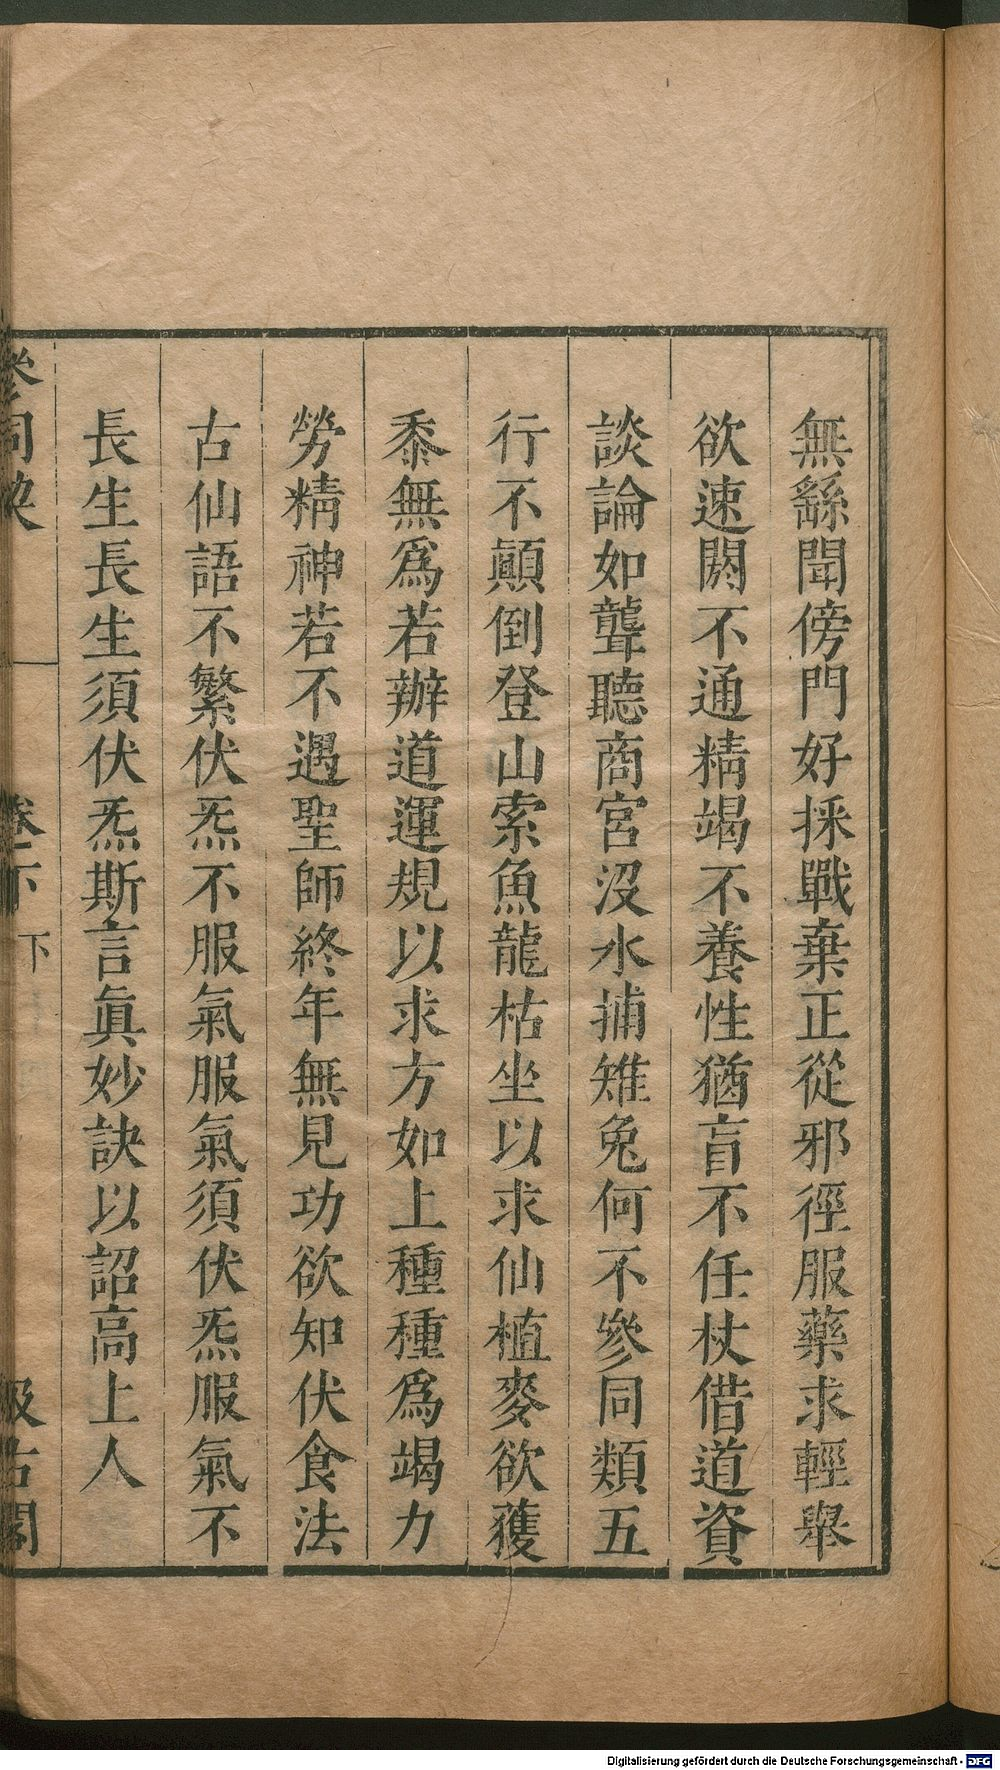 無繇聞傍門好採戰棄正從邪徑服藥求輕舉
欲速閼不通精竭不養性猶盲不任杖借道資
談論如聾聽商宮沒水捕雉兔何不參同類五
行不顚倒登山索魚龍枯坐以求仙植麥欲穫
黍無爲若辦道運規以求方如上種種爲竭力
勞精神若不遇聖師終年無見功欲知伏食法
古仙語不繁伏炁不服氣服氣須伏炁服氣不
長生長生須伏炁斯言眞妙訣以詔高上人
卷下
下
汲古閣
Digitalisierung gefördert durch die Deutsche Forschungsgemeinschaft - DFG